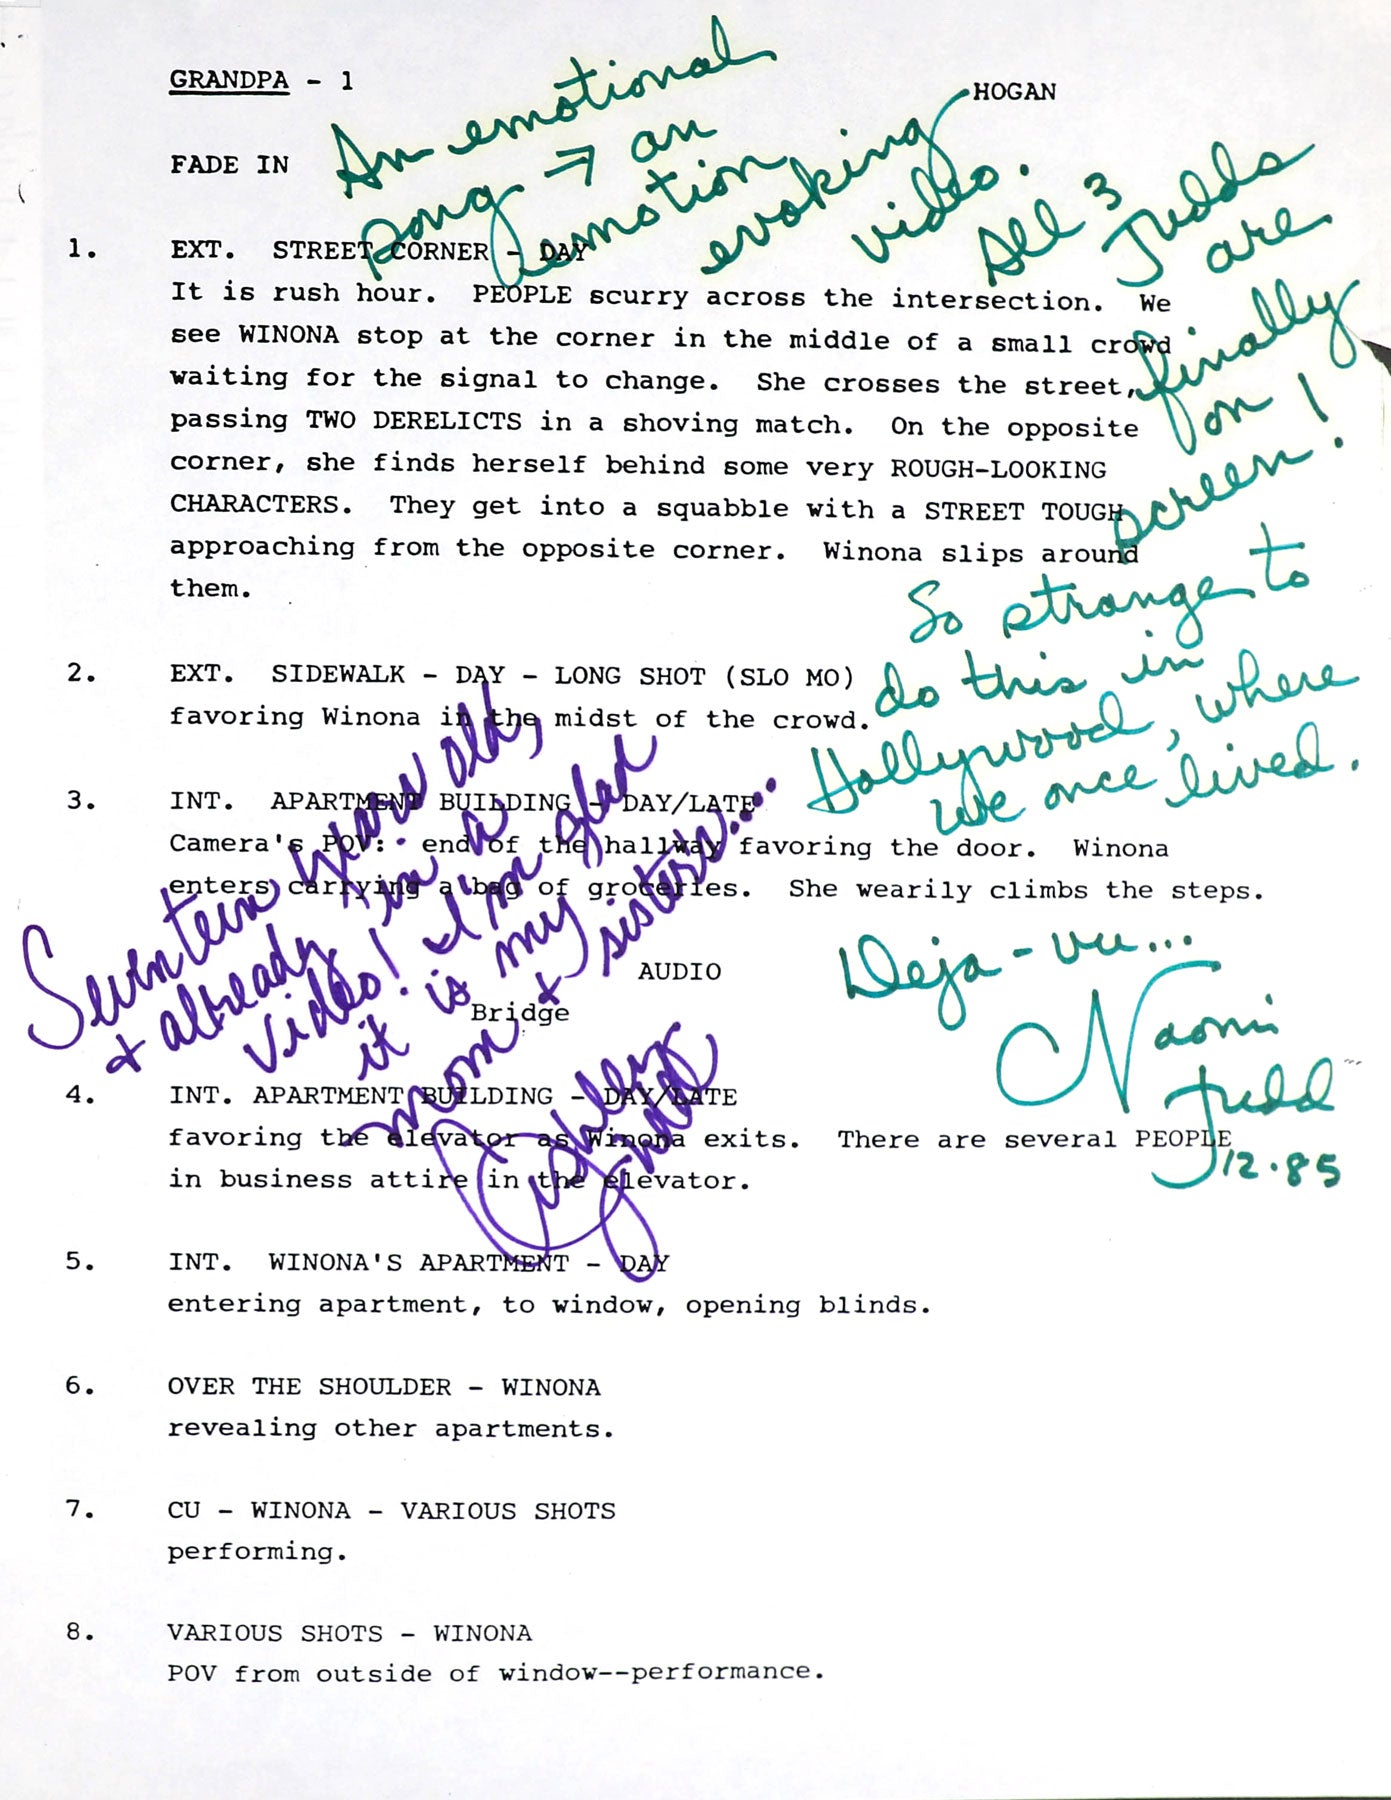 GRANDPA - 1
HOGAN
FADE IN
An emotional
song → an
emotion
evoking
video.
All 3
Judds
are
finally
on
screen!
1. EXT. STREET CORNER - DAY
It is rush hour. PEOPLE scurry across the intersection. We
see WINONA stop at the corner in the middle of a small crowd
waiting for the signal to change. She crosses the street,
passing TWO DERELICTS in a shoving match. On the opposite
corner, she finds herself behind some very ROUGH-LOOKING
CHARACTERS. They get into a squabble with a STREET TOUGH
approaching from the opposite corner. Winona slips around
them.
So strange to
do this in
Hollywood, where
we once lived.
2. EXT. SIDEWALK - DAY - LONG SHOT (SLO MO)
favoring Winona in the midst of the crowd.
3. INT. APARTMENT BUILDING - DAY/LATE
Camera's POV: end of the hallway favoring the door. Winona
enters carrying a bag of groceries. She wearily climbs the steps.
Seventeen years old,
+ already in a
video! I'm glad
it is my
mom + sister's....
Ashley
Judd
Deja-vu...
Naomi
Judd
12.85
AUDIO
Bridge
4. INT. APARTMENT BUILDING - DAY/LATE
favoring the elevator as Winona exits. There are several PEOPLE
in business attire in the elevator.
5. INT. WINONA'S APARTMENT - DAY
entering apartment, to window, opening blinds.
6. OVER THE SHOULDER - WINONA
revealing other apartments.
7. CU - WINONA - VARIOUS SHOTS
performing.
8. VARIOUS SHOTS - WINONA
POV from outside of window--performance.